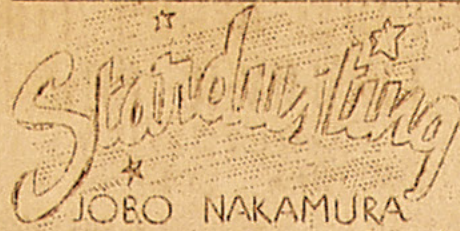 Stardusting
JOBO NAKAMURA